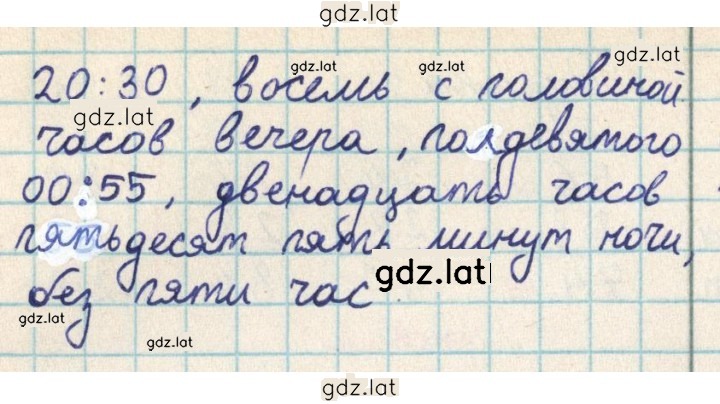 gdz.lat
gdz.lat gdz.lat gdz.lat
20:30, восемь с половиной
gdz.lat
часов вечера, полдевятого
00:55, двенадцать часов
пятьдесят пять минут ночи,
gdz.lat
без пяти час
gdz.lat gdz.lat
gdz.lat